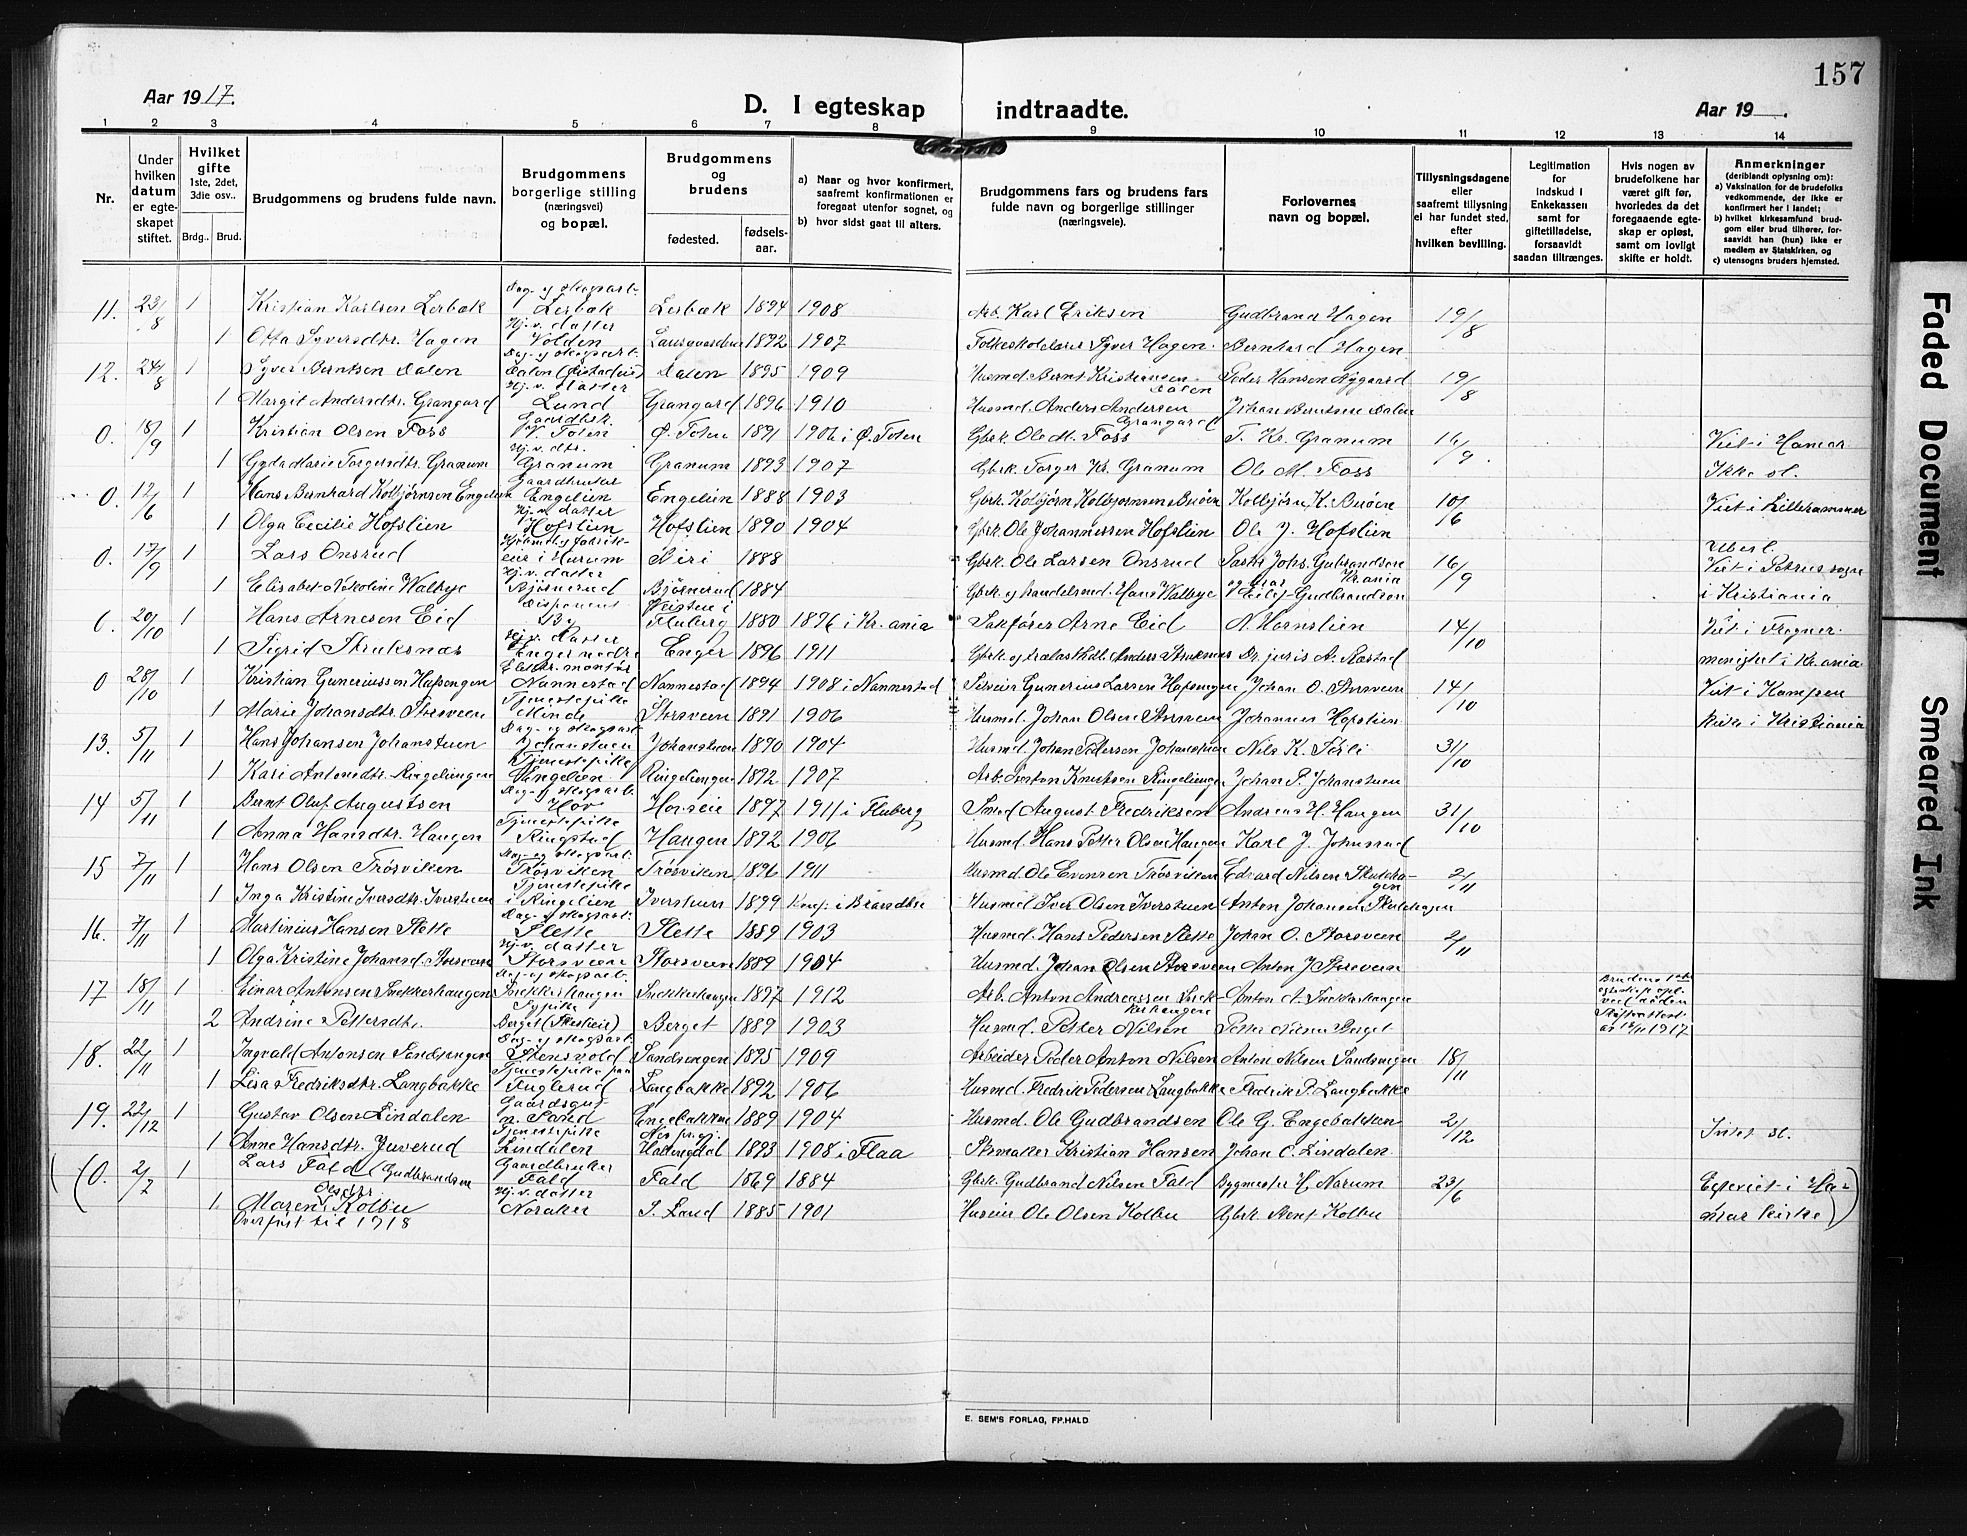 157
Aar 1917.
D. I egteskap indtraadte.
Aar 19
1 2 3 4 5 6 7 8 9 10 11 12 13 14
Nr.
Under hvilken datum er egteskapet stiftet.
Hvilket gifte 1ste, 2det, 3die osv..
Brdg.. Brud.
Brudgommens og brudens fulde navn.
Brudgommens borgerlige stilling (næringsvei) og bopæl.
Brudgommens og brudens
fødested.
fødsels-aar.
a) Naar og hvor konfirmert, saafremt konfirmationen er foregaat utenfor sognet, og
b) hvor sidst gaat til alters.
Brudgommens fars og brudens fars fulde navn og borgerlige stillinger (næringsveie).
Forlovernes navn og bopæl.
Tillysningsdagene eller saafremt tillysning ei har fundet sted, efter hvilken bevilling.
Legitimation for indskud i Enkekassen samt for giftetilladelse, forsaavidt saadan tiltrænges.
Hvis nogen av brudefolkene har været gift før, hvorledes da det foregaaende egteskap er opløst, samt om lovligt skifte er holdt.
Anmerkninger (deriblandt oplysning om):
a) Vaksination for de brudefolks vedkommende, der ikke er konfirmert her i landet;
b) hvilket kirkesamfund brudgom eller brud tilhører, forsaavidt han (hun) ikke er medlem av Statskirken, og
c) utensogns bruders hjemsted.
11. 23/8 1 Kristian Karlsen Lerbæk Dag- og skogsarb. Lerbæk Lerbæk 1894 1908 Arb. Karl Eriksen Gudbrand Hagen 19/8
1 Otta Syversdtr. Hagen Hj.v. datter Volden 1892 1907 Folkeskolelærer Syver Hagen. Bernhard Hagen
12. 24/8 1 Syver Berntsen Dalen Dag- og skogsarb. Dalen Dalen 1895 1909 Husmd. Bernt Kristiansen Dalen Peder Hansen Nygaard 19/8
1 Margit Andersdtr. Grangard Hj.v. datter Lund Grangard 1896 1910 Husmd. Anders Andersen Grangard Johan Berntsen Dalen
0. 18/9 1 Kristian Olsen Foss Gaardbsk. V. Toten Ø. Toten 1891 1906 i Ø. Toten Gbrk. Ole M. Foss T. Kr. Granum 16/9 Viet i Hamar
1 Gyda Marie Torgersdtr. Granum Hj.v. dtr. Granum Granum 1893 1907 Gbrk. Torger Kr. Granum Ole M. Foss Ikke sl.
0. 12/6 1 Hans Bernhard Kolbjørnsen Engelien Gaardbruker Engelien Engelien 1888 1903 Gbrk. Kolbjørn Kolbjørnsen Buøen Kolbjørn K. Buøen 10/6 Viet i Lillehammer
1 Olga Cecilie Hofslien Hj.v. datter Hofslien Hofslien 1890 1904 Gbrk. Ole Johannessen Hofslien Ole J. Hofslien
0. 17/9 1 Lars Onsrud eier i Hurum Biri 1888 Gbrk. Ole Larsen Onsrud Pastor Johs. Gudbrandsen Kr.ania 16/9 Viet i Petrus sogn
1 Elisabet Nikoline Walbye Hj.v. datter Bjørnerud Bjørnerud 1884 Gbrk. og handelsmd. Hans Walbye Gudbrandsen i Kristiania
0. 20/10 1 Hans Arnesen Eid Disponent Fluberg 1880 1896 i Kr.ania Sakfører Arne Eid N. Hornslien 14/10 Viet i Frogner
1 Sigrid Struksnæs Hj.v. datter Enger nedre Enger 1896 1911 Gbrk. og Anders Struksnæs Dr. juris A. Ræstad menighet i Kr.ania
0 28/10 1 Kristian Guneriussen Hafsengen Elektr. montør Nannestad Nannestad 1894 1908 i Nannestad Gunerius Larsen Hafsengen Johan O. Storsveen 14/10 Viet i Kampen
1 Marie Johansdtr. Storsveen Tjenestepike Minde Storsveen 1891 1906 Husmd. Johan Olsen Storsveen Johannes Hofslien kirke i Kristiania
13. 5/11 1 Hans Johansen Johanstuen Dag- og skogsarb. Johanstuen Johanstuen 1890 1904 Husmd. Johan Pettersen Johanstuen Nils K. 31/10
1 Kari Antonsdtr. Ringeliengen Tjenestepike Engelien Ringeliengen 1892 1907 Arb. Anton Knutsen Ringeliengen Johan P. Johanstuen
14 5/11 1 Bernt Oluf Augustsen Dag- og skogsarb. Hov 1897 1911 i Fluberg Smed August Fredriksen Andreas H. Haugen 31/10
1 Anna Hansdtr. Haugen Tjenestepike Ringelud Haugen 1892 1906 Husmd. Hans Petter Olsen Haugen Karl J. Johnsrud
15 7/11 1 Hans Olsen Trøsviken Dag- og skogsarb. Trøsviken Trøsviken 1896 1911 Husmd. Ole Evensen Trøsviken Edvard Nilsen Skuthagen 2/11
1 Inga Kristine Iversdtr. Iverstuen Tjenestepike i Ringelien Iverstuen 1899 Konf. i Husmd. Iver Olsen Iverstuen Anton Johansen Skuthagen
16. 7/11 1 Martinius Hansen Slette Dag- og skogsarb. Slette Slette 1889 1903 Husmd. Hans Pedersen Slette Johan O. Storsveen 2/11
1 Olga Kristine Johansd. Storsveen Hj.v. datter Storsveen Storsveen 1889 1904 Husmd. Johan Olsen Storsveen Anton J. Storsveen
17 18/11 1 Einar Antonsen Snekkerhaugen Dag- og skogsarb. Snekkerhaugen Snekkerhaugen 1897 1912 Arb. Anton Andreassen Snekkerhaugen Anton A. Snekkerhaugen Brudens 1ste egteskap opl. ved døden
2 Andrine Pettersdtr. Berget Berget 1889 1903 Husmd. Petter Nilsen Petter Nilsen Berget 1917
18. 22/11 1 Ingvald Antonsen Sandsengen Dag- og skogsarb. Stensvold Sandsengen 1895 1909 Arbeider Peder Anton Nilsen Anton Nilsen Sandsengen 18/11
1 Lisa Fredriksdtr. Langbakke Tjenestepike paa Fuglerud Langbakke 1892 1906 Husmd. Fredrik Pedersen Langbakke Fredrik P. Langbakke
19. 22/12 1 Gustav Olsen Lindalen Gaardsgut n. Sand 1889 1904 Husmd. Ole Gudbrandsen Ole G. Engebakken 2/12
1 Anne Hansdtr. Juverud Tjenestepike Lindalen Hallingdal 1893 1908 i Flaa Skmaker Kristian Hansen Johan C. Lindalen. Intet sl.
(0. 2/7 1 Lars Fald (Gudbrandsen Gaardbruker Fald Fald 1869 1884 Gbrk. Gudbrand Nilsen Fald Bygmester H. Narum 23/6 Egteviet i Ha-
1 Maren Olsdtr. Kolbu Hj.v. datter Noraker S. Land 1885 1901 Huseier Ole Olsen Kolbu Gbrk. Bent Kolbu mar kirke)
Overført til 1918
E. SEM'S FORLAG, FR.HALD
Faded Document
Smeared Ink